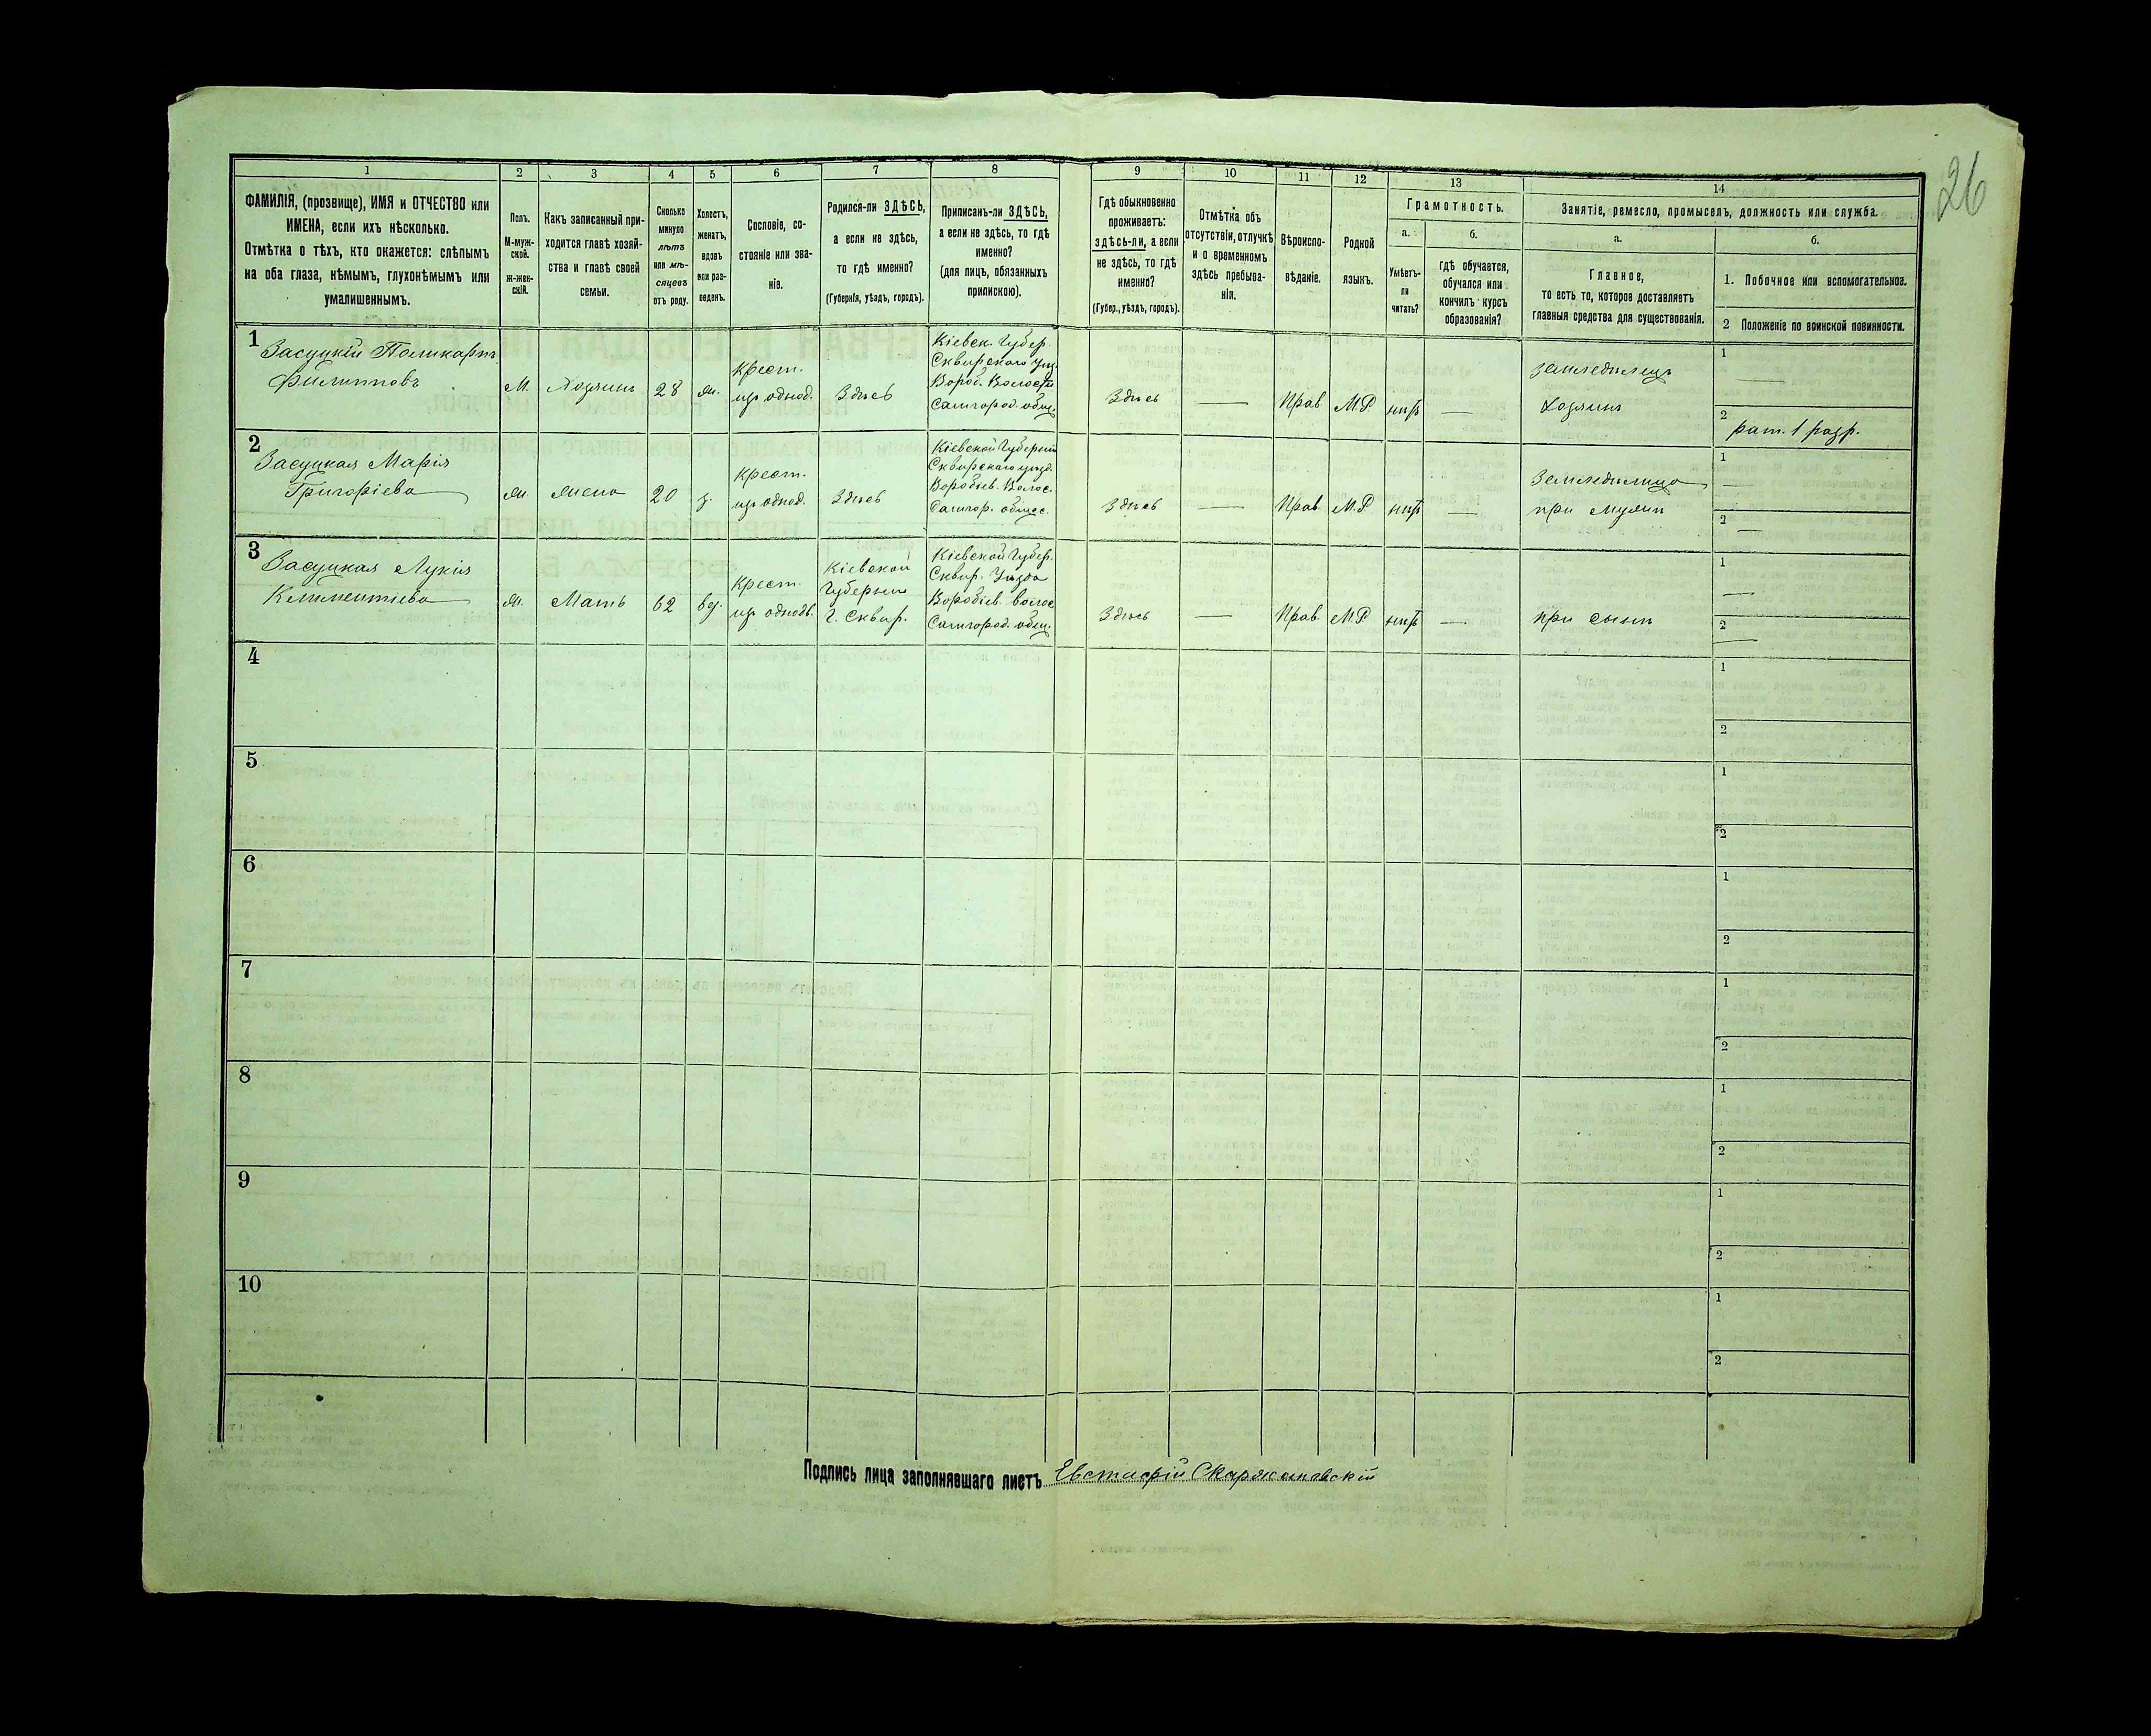 26
1 2 3 4 5 6 7 8 9 10 11 12 13 14
ФАМИЛІЯ, (прозвище), ИМЯ и ОТЧЕСТВО или
ИМЕНА, если ихъ нѣсколько.
Отмѣтка о тѣхъ, кто окажется: слѣпымъ
на оба глаза, нѣмымъ, глухонѣмымъ или
умалишеннымъ.
Полъ.
М-муж-
ской.
ж-жен-
скій.
Какъ записанный при-
ходится главѣ хозяй-
ства и главѣ своей
семьи.
Сколько
минуло
лѣтъ
или мѣ-
сяцевъ
отъ роду.
Холостъ,
женатъ,
вдовъ
или раз-
веденъ.
Сословіе, со-
стояніе или зва-
ніе.
Родился-ли ЗДѢСЬ,
а если не здѣсь,
то гдѣ именно?
(Губернія, уѣздъ, городъ).
Приписанъ-ли ЗДѢСЬ,
а если не здѣсь, то гдѣ
именно?
(для лицъ, обязанныхъ
припискою).
Гдѣ обыкновенно
проживаетъ:
здѣсь-ли, а если
не здѣсь, то гдѣ
именно?
(Губер., уѣздъ, городъ).
Отмѣтка объ
отсутствіи, отлучкѣ
и о временномъ
здѣсь пребыва-
ніи.
Вѣроиспо-
вѣданіе.
Родной
языкъ.
Грамотность.
а.
Умѣетъ-
ли
читать?
б.
гдѣ обучается,
обучался или
кончилъ курсъ
образованія?
Занятіе, ремесло, промыселъ, должность или служба.
а.
Главное,
то есть то, которое доставляетъ
главныя средства для существованія.
б.
1. Побочное или вспомогательное.
2 Положеніе по воинской повинности.
1
Засуцкій Поликарпъ
Филипповъ
М.
Хозяинъ
28
ж.
крест.
изъ однод.
Здѣсь
Кіевск. Губер.
Сквирскаго уѣз.
Вороб. Волости
Самгород. общ.
Здѣсь
—
Прав.
М.Р.
нѣтъ
—
земледѣлецъ
хозяинъ
1
—
2
рат. 1 разр.
2
Засуцкая Марія
Григоріева
ж.
жена
20
з.
крест.
изъ однод.
Здѣсь
Кіевской Губерніи
Сквирскаго уѣзд.
Воробіев. Волос.
Самгор. общес.
Здѣсь
—
Прав.
М.Р.
нѣтъ
—
Земледѣлица
при мужѣ
1
—
2
—
3
Засуцкая Лукія
Климентіева
ж.
Мать
62
вд.
крест.
из однодв.
Кіевской
Губерніи
г. Сквир.
Кіевской Губер.
Сквир. Уѣзда
Воробіев. волос
Самгород. общ.
Здѣсь
—
Прав.
М.Р.
нѣтъ
—
при сынѣ
1
—
2
—
4
1
2
5
1
2
6
1
2
7
1
2
8
1
2
9
1
2
10
1
2
Подпись лица заполнявшаго листъ Евстафій Скаржановскій